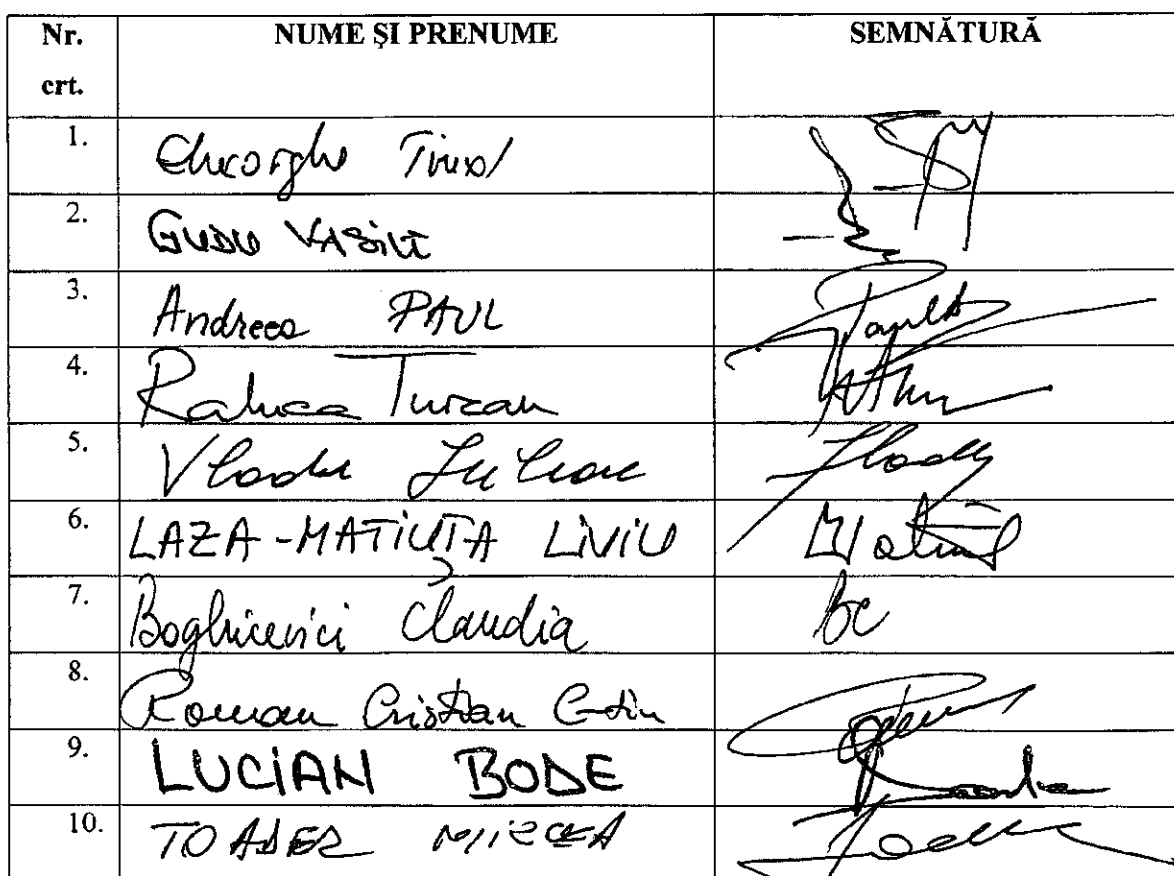 Nr. crt. NUME ȘI PRENUME SEMNĂTURĂ
1. Gheorghe
2. GUDU VASILE
3. Andreea PAUL
4. Raluca Turcan
5. Vladu Iulian
6. LAZA-MATIUȚA LIVIU
7. Boghicevici Claudia
8. Roman Cristian
9. LUCIAN BODE
10. TOADER MIRCEA